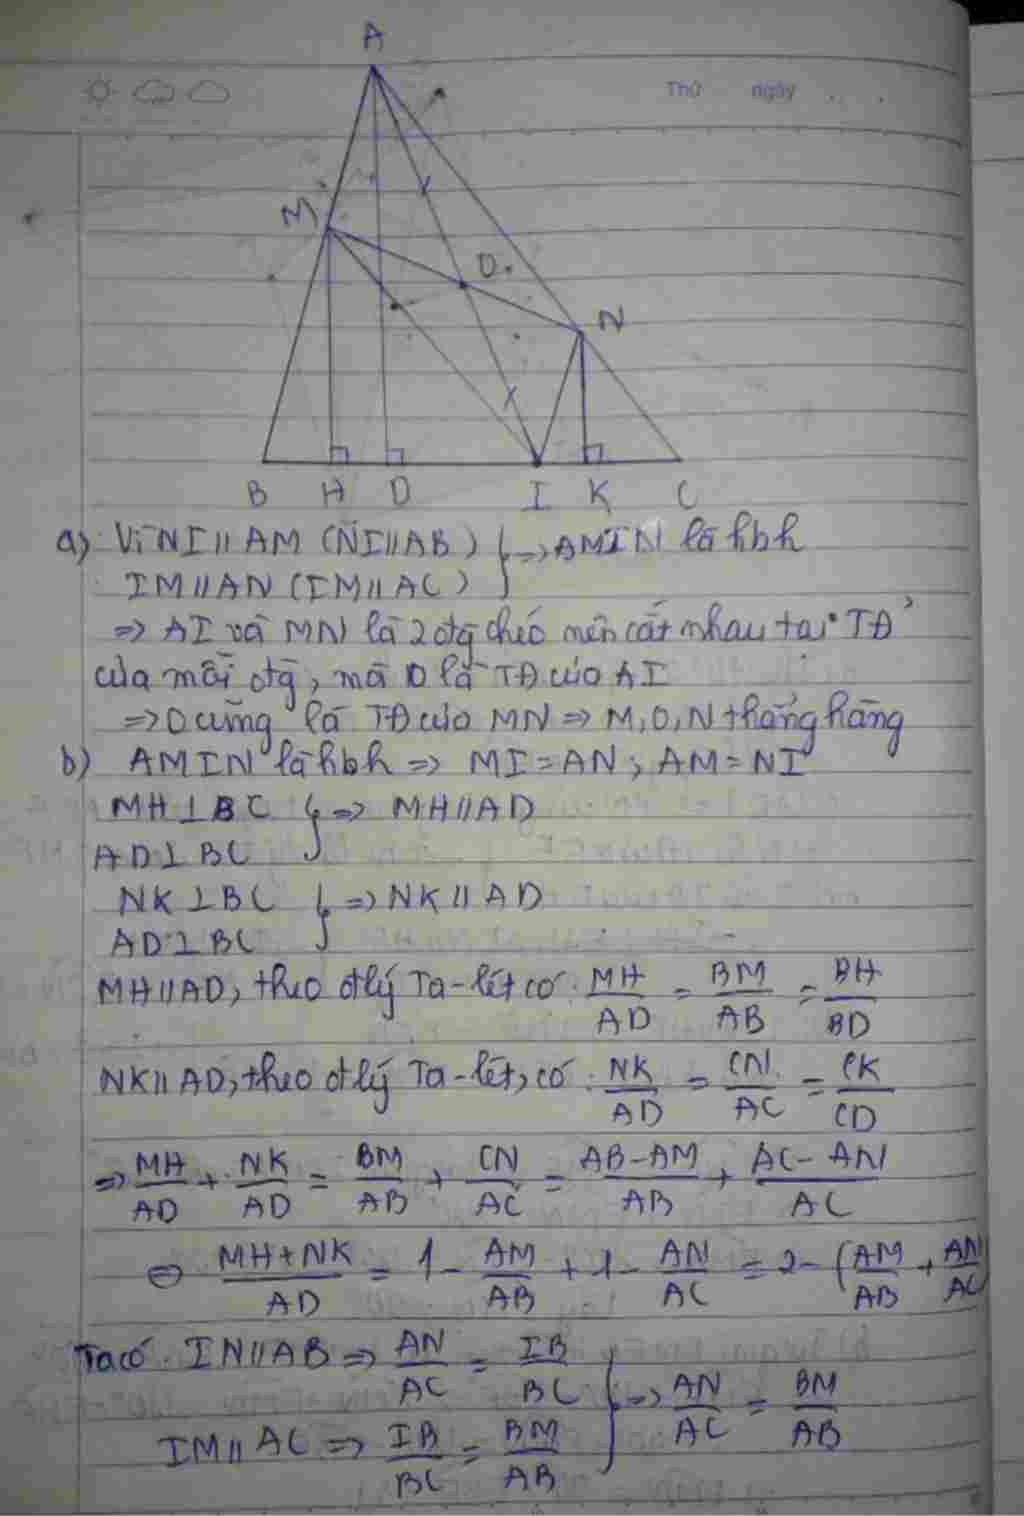 Thứ ngày
A
M
O
N
B H D I K C
a) Vì NI // AM (NI // AB) } => AMIN là hbh
IM // AN (IM // AC)
=> AI và MN là 2 đg chéo nên cắt nhau tại TĐ
của mỗi đg, mà O là TĐ của AI
=> O cũng là TĐ của MN => M, O, N thẳng hàng
b) AMIN là hbh => MI = AN; AM = NI
MH ⊥ BC } => MH // AD
AD ⊥ BC
NK ⊥ BC } => NK // AD
AD ⊥ BC
MH // AD, theo đlý Ta-lét có: MH/AD = BM/AB = BH/BD
NK // AD, theo đlý Ta-lét, có: NK/AD = CN/AC = CK/CD
=> MH/AD + NK/AD = BM/AB + CN/AC = AB-AM/AB + AC-AN/AC
<=> MH+NK/AD = 1 - AM/AB + 1 - AN/AC = 2 - (AM/AB + AN/AC)
Ta có: IN // AB => AN/AC = IB/BC } => AN/AC = BM/AB
IM // AC => IB/BC = BM/AB